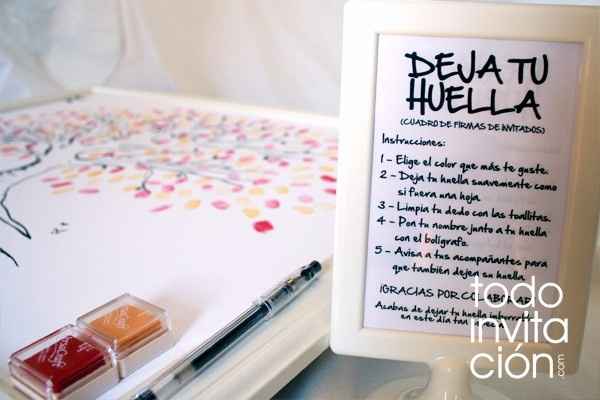 DEJA TU
HUELLA
(CUADRO DE FIRMAS DE INVITADOS)
Instrucciones:
1 - Elige el color que más te guste.
2 - Deja tu huella suavemente como
si fuera una hoja.
3 - Limpia tu dedo con las toallitas.
4 - Pon tu nombre junto a tu huella
con el bolígrafo.
5 - Avisa a tus acompañantes para
que también dejen su huella.
¡GRACIAS POR COLABORAR!
Acabas de dejar tu huella
en este día tan
todo
invita
ción.com